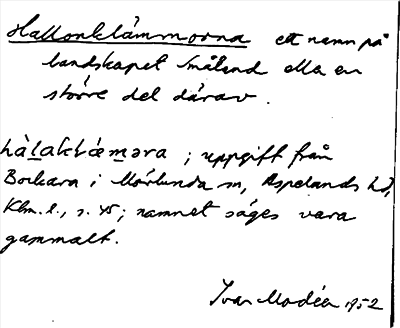 Hallonklämmorna ett namn på
landskapet Småland eller en
större del därav.
hàlakláməra ; uppgift från
i Mörlunda sn, Aspelands hd,
Klm. l., s. 45; namnet säges vara
gammalt.
Ivar Modéer 1952